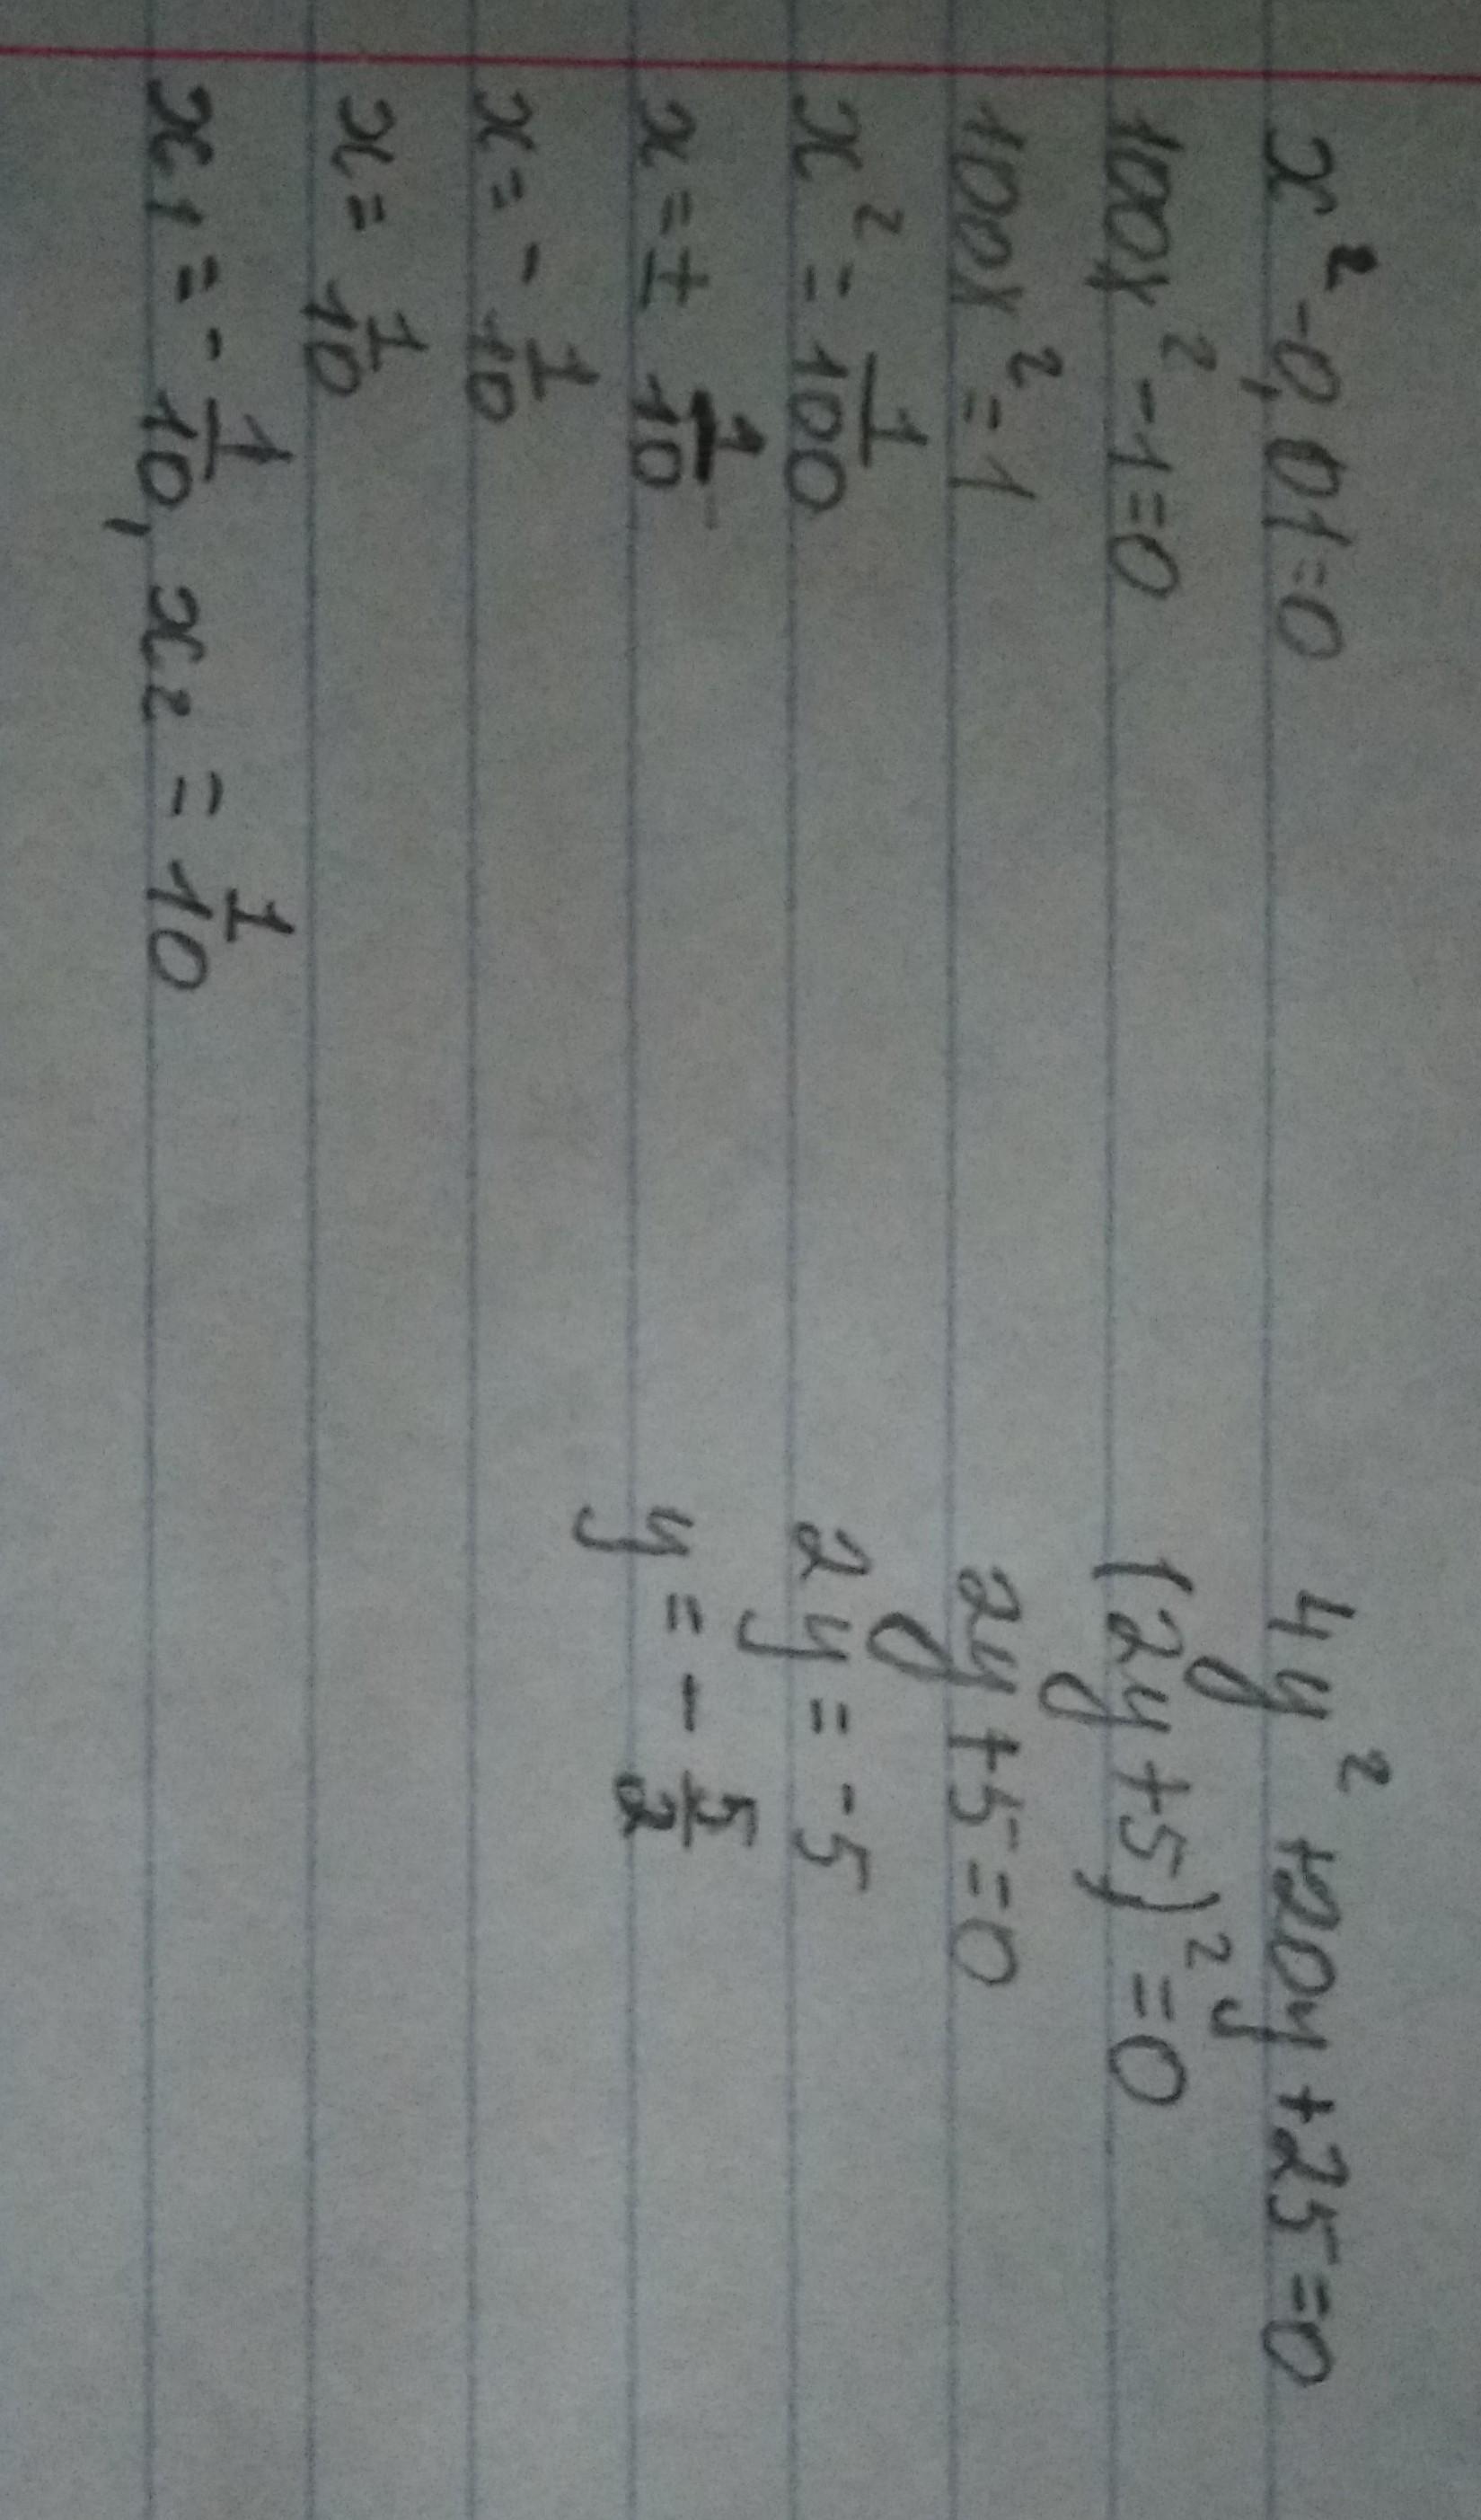 x² - 0,01 = 0
100x² - 1 = 0
100x² = 1
x² = 1/100
x = ± 1/10
x = - 1/10
x = 1/10
x1 = - 1/10, x2 = 1/10
4y² + 20y + 25 = 0
(2y + 5)² = 0
2y + 5 = 0
2y = -5
y = - 5/2